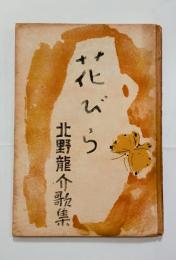 花びら
北野龍介歌集